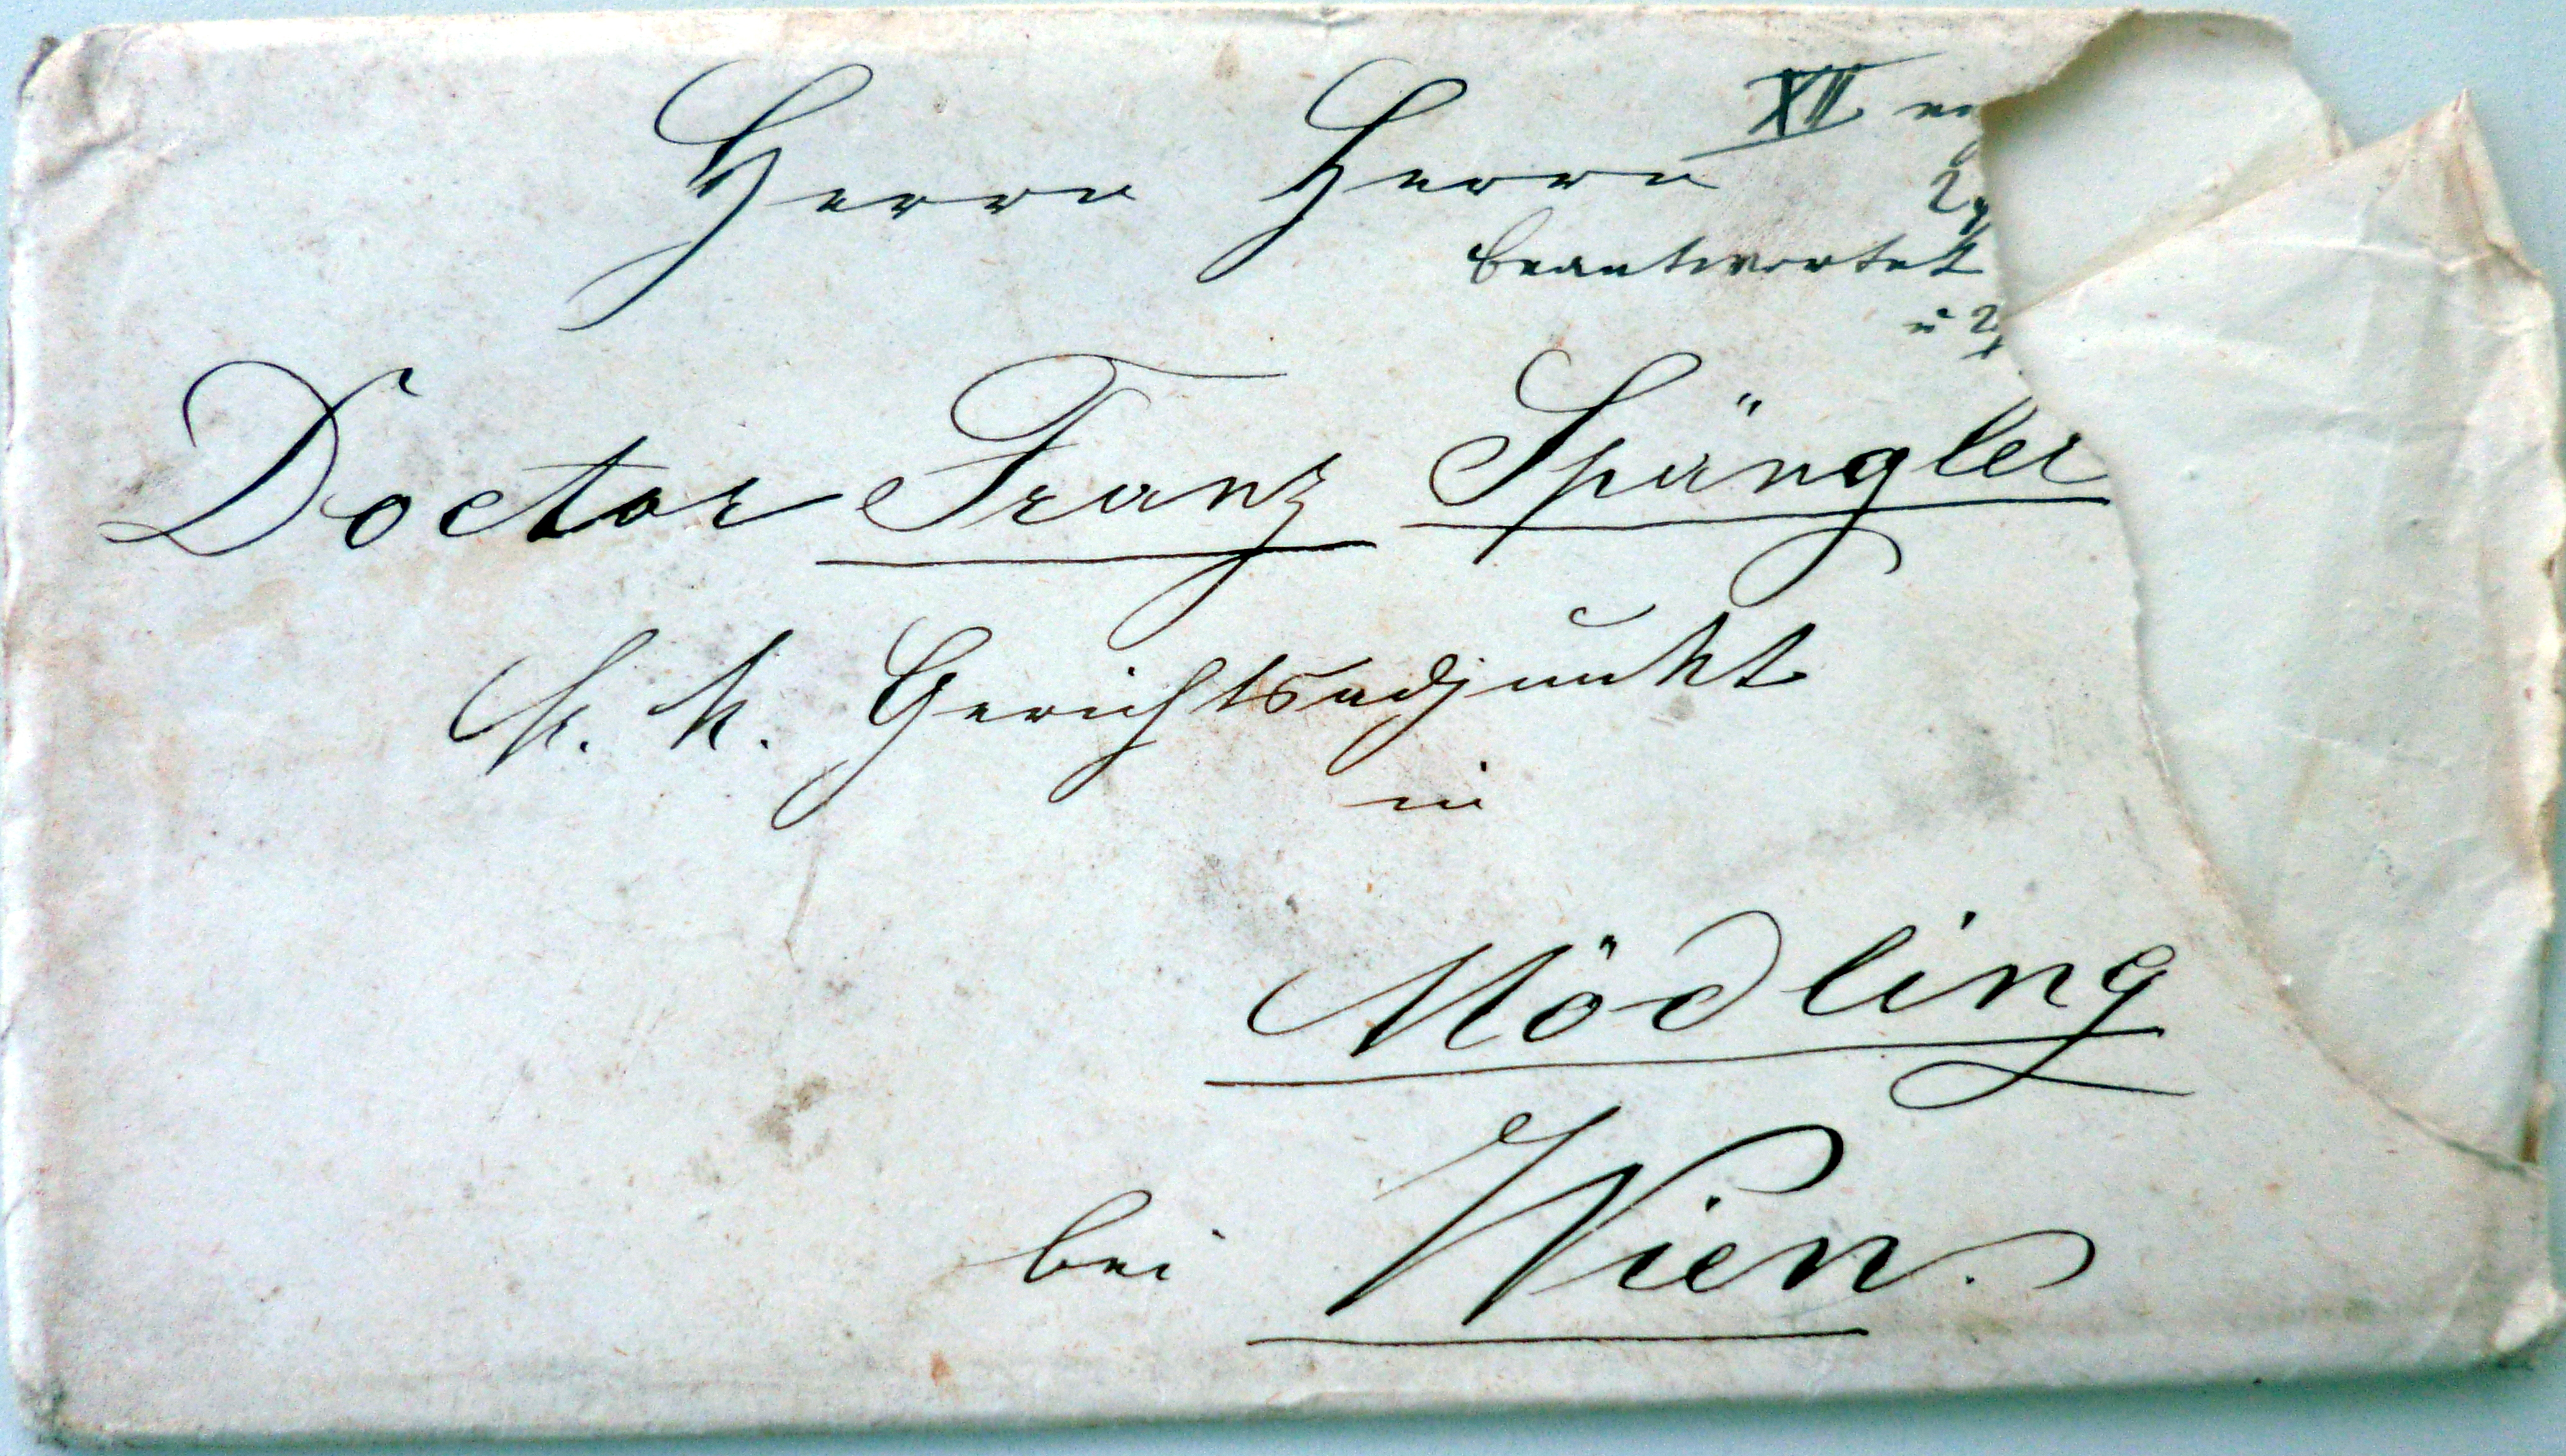 Herrn Herrn XII
beantwortet
Doctor Franz Spängler
k. k. Gerichtsadjunkt
in
Mödling
bei Wien.